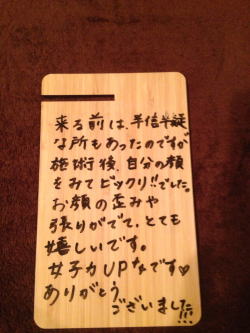 来る前は、半信半疑
な所もあったのですが
施術後、自分の顔
をみてビックリ!!でした。
お顔の歪みや
張りがでて、とても
嬉しいです。
女子力UPなです♡
ありがとう
ございました!!!